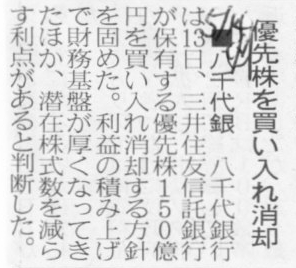 優先株を買い入れ消却
5/14
■八千代銀　八千代銀行
は13日、三井住友信託銀行
が保有する優先株150億
円を買い入れ消却する方針
を固めた。利益の積み上げ
で財務基盤が厚くなってき
たほか、潜在株式数を減ら
す利点があると判断した。